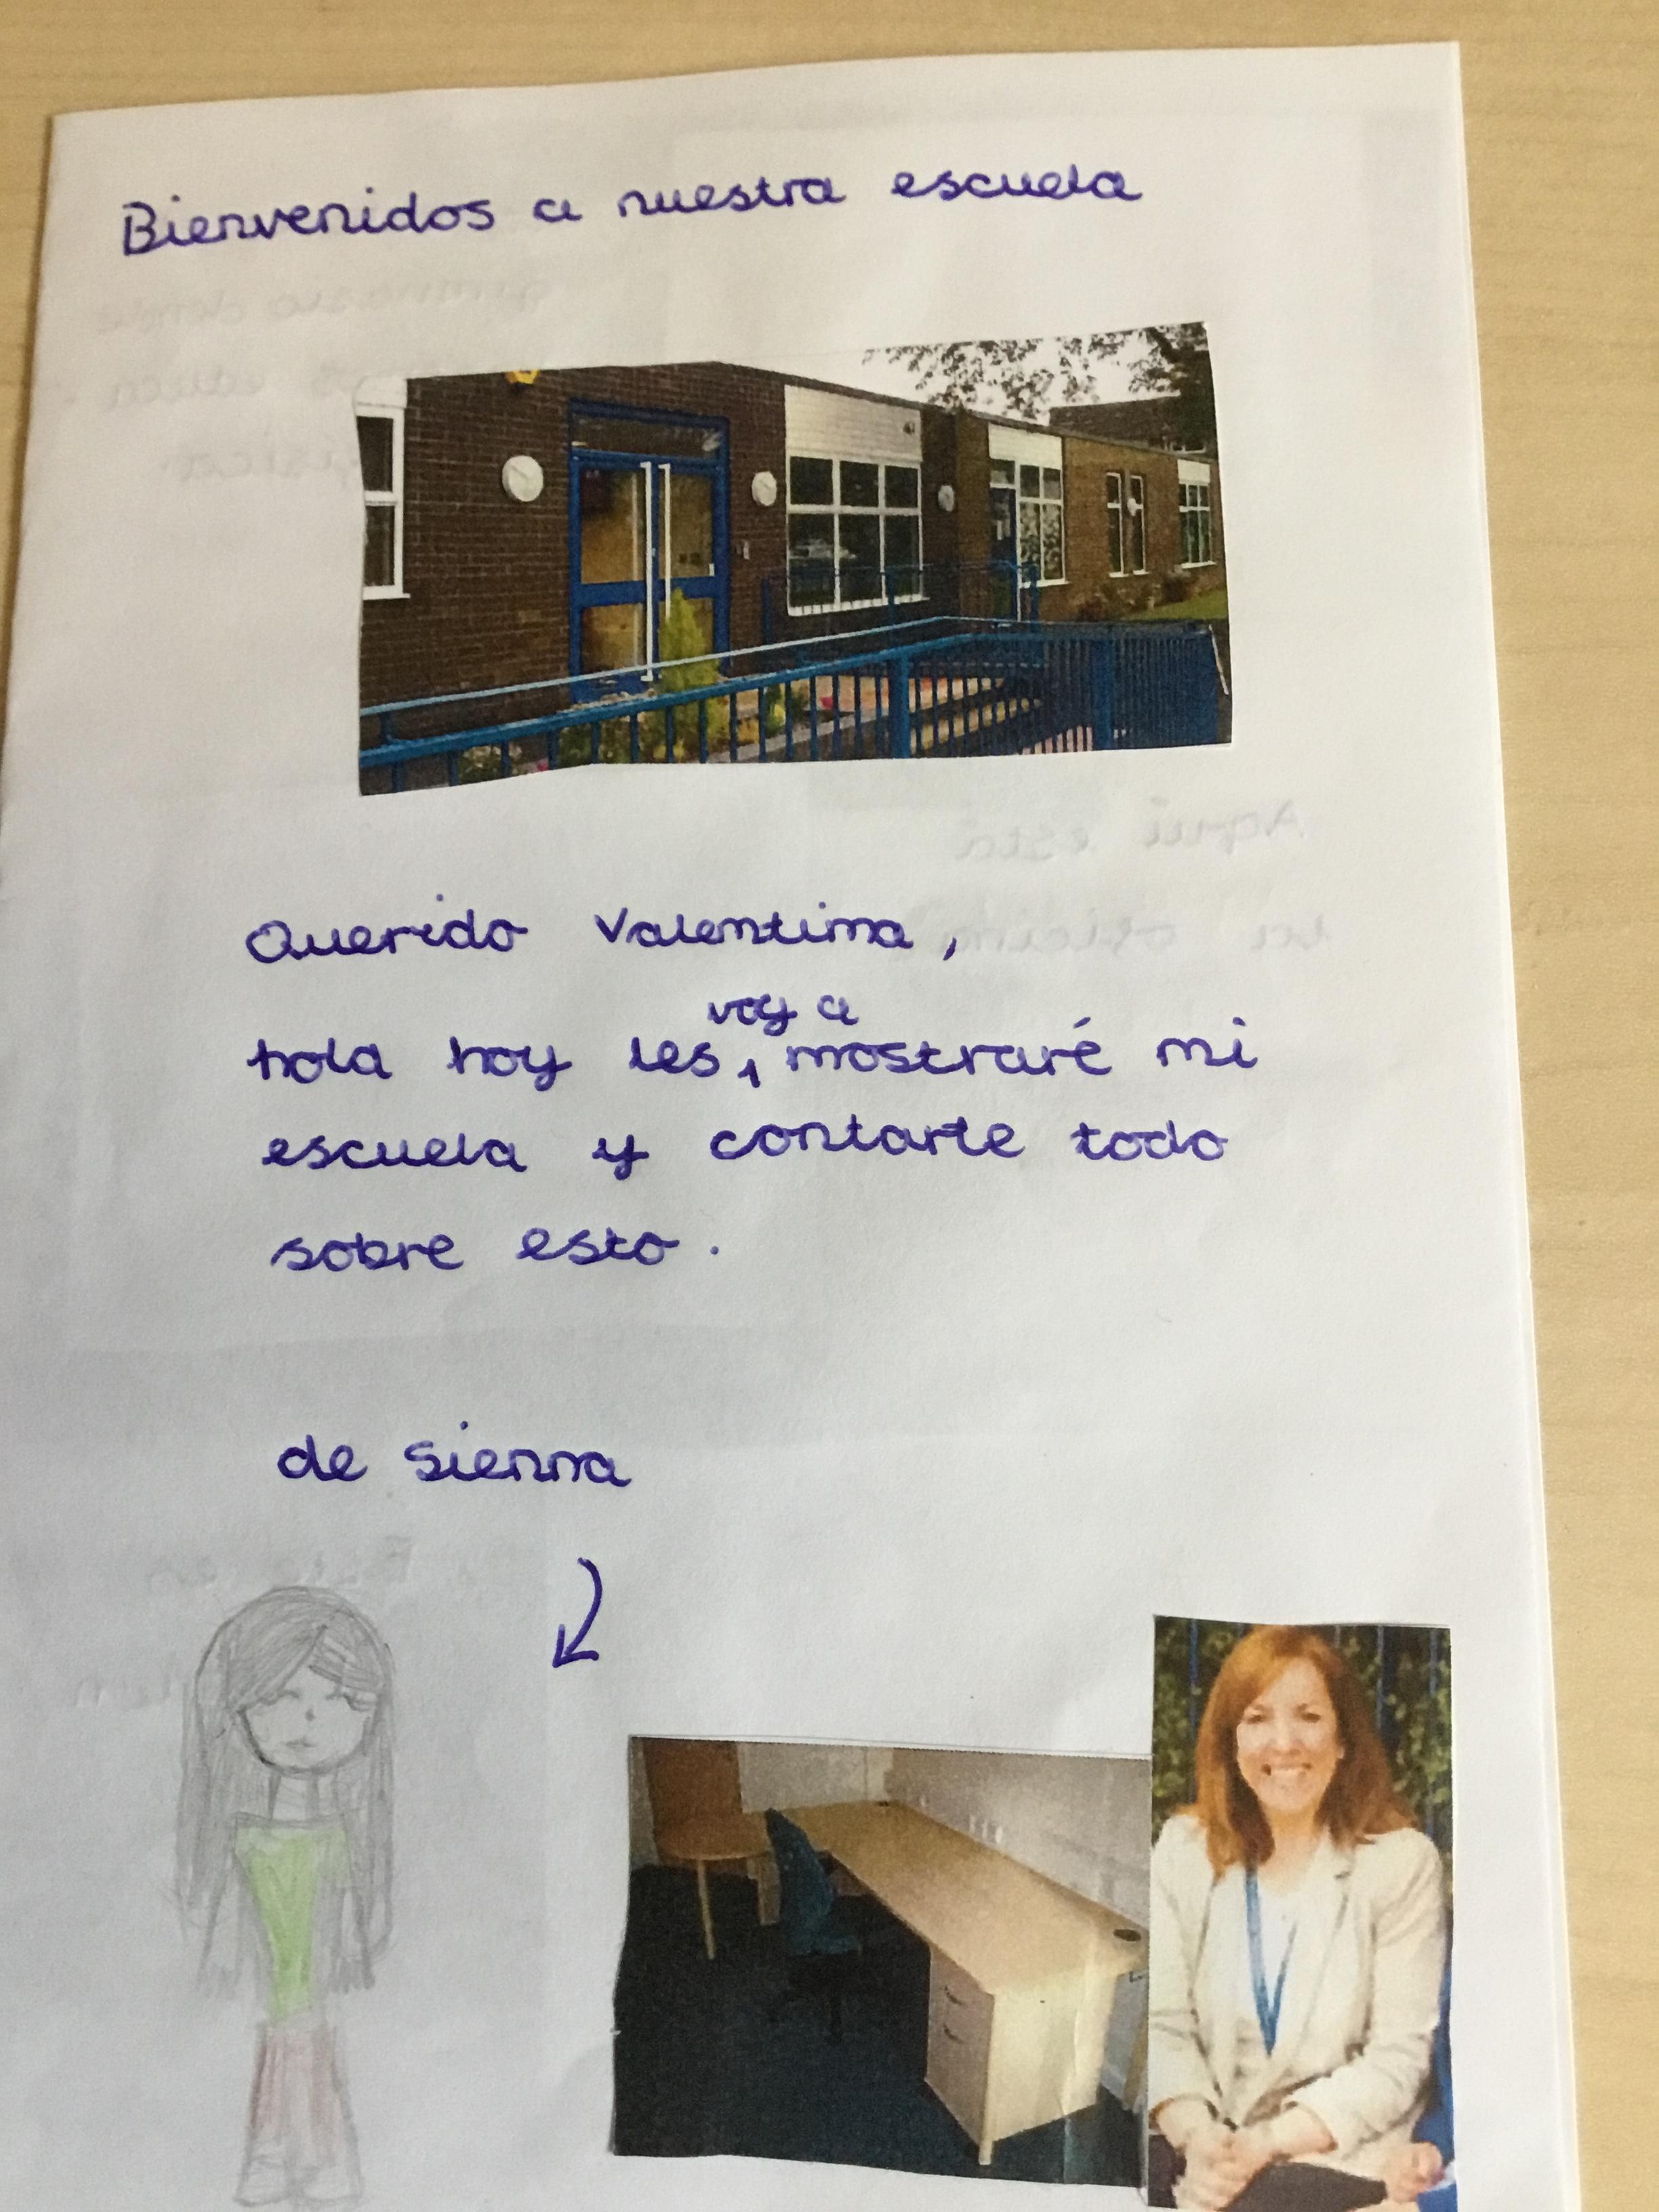 Bienvenidos a nuestra escuela
Querido Valentina,
voy a
hola hoy les, mostraré mi
escuela y contarte todo
sobre esto.
de Sienna